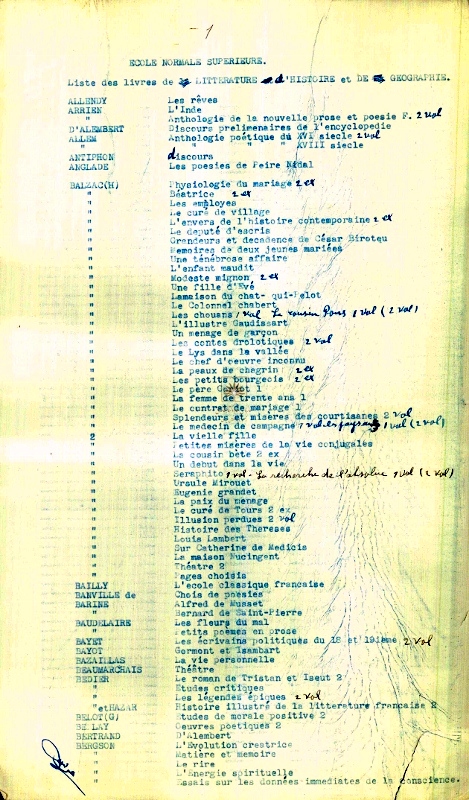 - 1
ECOLE NORMALE SUPERIEURE.
Liste des livres de LITTERATURE d'HISTOIRE et DE GEOGRAPHIE.
ALLENDY Les rêves
ARRIEN L'Inde
Anthologie de la nouvelle prose et poesie F. 2 vol
D'ALEMBERT Discours preliminaires de l'encyclopedie
ALLEM Anthologie poétique du XVI siecle 2 vol
" " " XVIII siecle
ANTIPHON discours
ANGLADE Les poesies de Peire Nidal
BALZAC(H) Physiologie du mariage 2 ex
" Béatrice 2 ex
" Les employes
" Le curé de village
" L'envers de l'histoire contemporaine 2 ex
" Le deputé d'escris
" Grandeurs et decadence de César Biroteu
" Memoires de deux jeunes mariées
" Une ténébrose affaire
" L'enfant maudit
" Modeste mignon 2 ex
" Une fille d'Evé
" Lamaison du chat- qui-Pelot
" Le Colonnel chabert
" Les chouans 1 vol Le cousin Pons 1 vol (2 vol)
" L'illustre Gaudissart
" Un menage de garçon
" Les contes drolotiques 2 vol
" Le Lys dans la vallée
" Le chef d'oeuvre inconnu
" La peaux de chagrin 2 ex
" Les petits bourgeois 2 ex
" Le père Goriot 1
" La femme de trente ans 1
" Le contrat de mariage 1
" Splendeurs et misères des courtisanes 2 vol
" Le medecin de campagne 1 vol les paysans 1 vol (2 vol)
2 La vielle fille
" Petites misères de la vie conjugales
" La cousin bète 2 ex
" Un debut dans la vie
" Seraphito 1 vol - La recherche de l'absolue 1 vol (2 vol)
" Ursule Mirouet
" Eugenie grandet
" La paix du menage
" Le curé de Tours 2 ex
" Illusion perdues 2 vol
" Histoire des Thereses
" Louis Lambert
" Sur Catherine de Medicis
" La maison Nucingent
" Théatre 2
" Pages choisis
BAILLY L'ecole classique francaise
BANVILLE de Chois de poésies
BARINE Alfred de Musset
" Bernard de Saint-Pierre
BAUDELAIRE Les fleurs du mal
" Petits poemes en prose
BAYET Les écrivains politiques du 18 et 19ième 2 vol
BAYOT Gormont et Isambart
BAZAILLAS La vie personnelle
BEAUMARCHAIS Théâtre
BEDIER Le roman de Tristan et Iseut 2
" Etudes critiques
" Les légendes épiques 2 vol
" etHAZAR Histoire illustré de la litterature francaise 2
BELOT(G) Etudes de morale positive 2
BELLAY Oeuvres poetiques 2
BERTRAND D'Alembert
BERGSON L'Evolution crestrice
" Matière et memoire
" Le rire
" L'Energie spirituelle
" Essais sur les données immediates de la conscience.